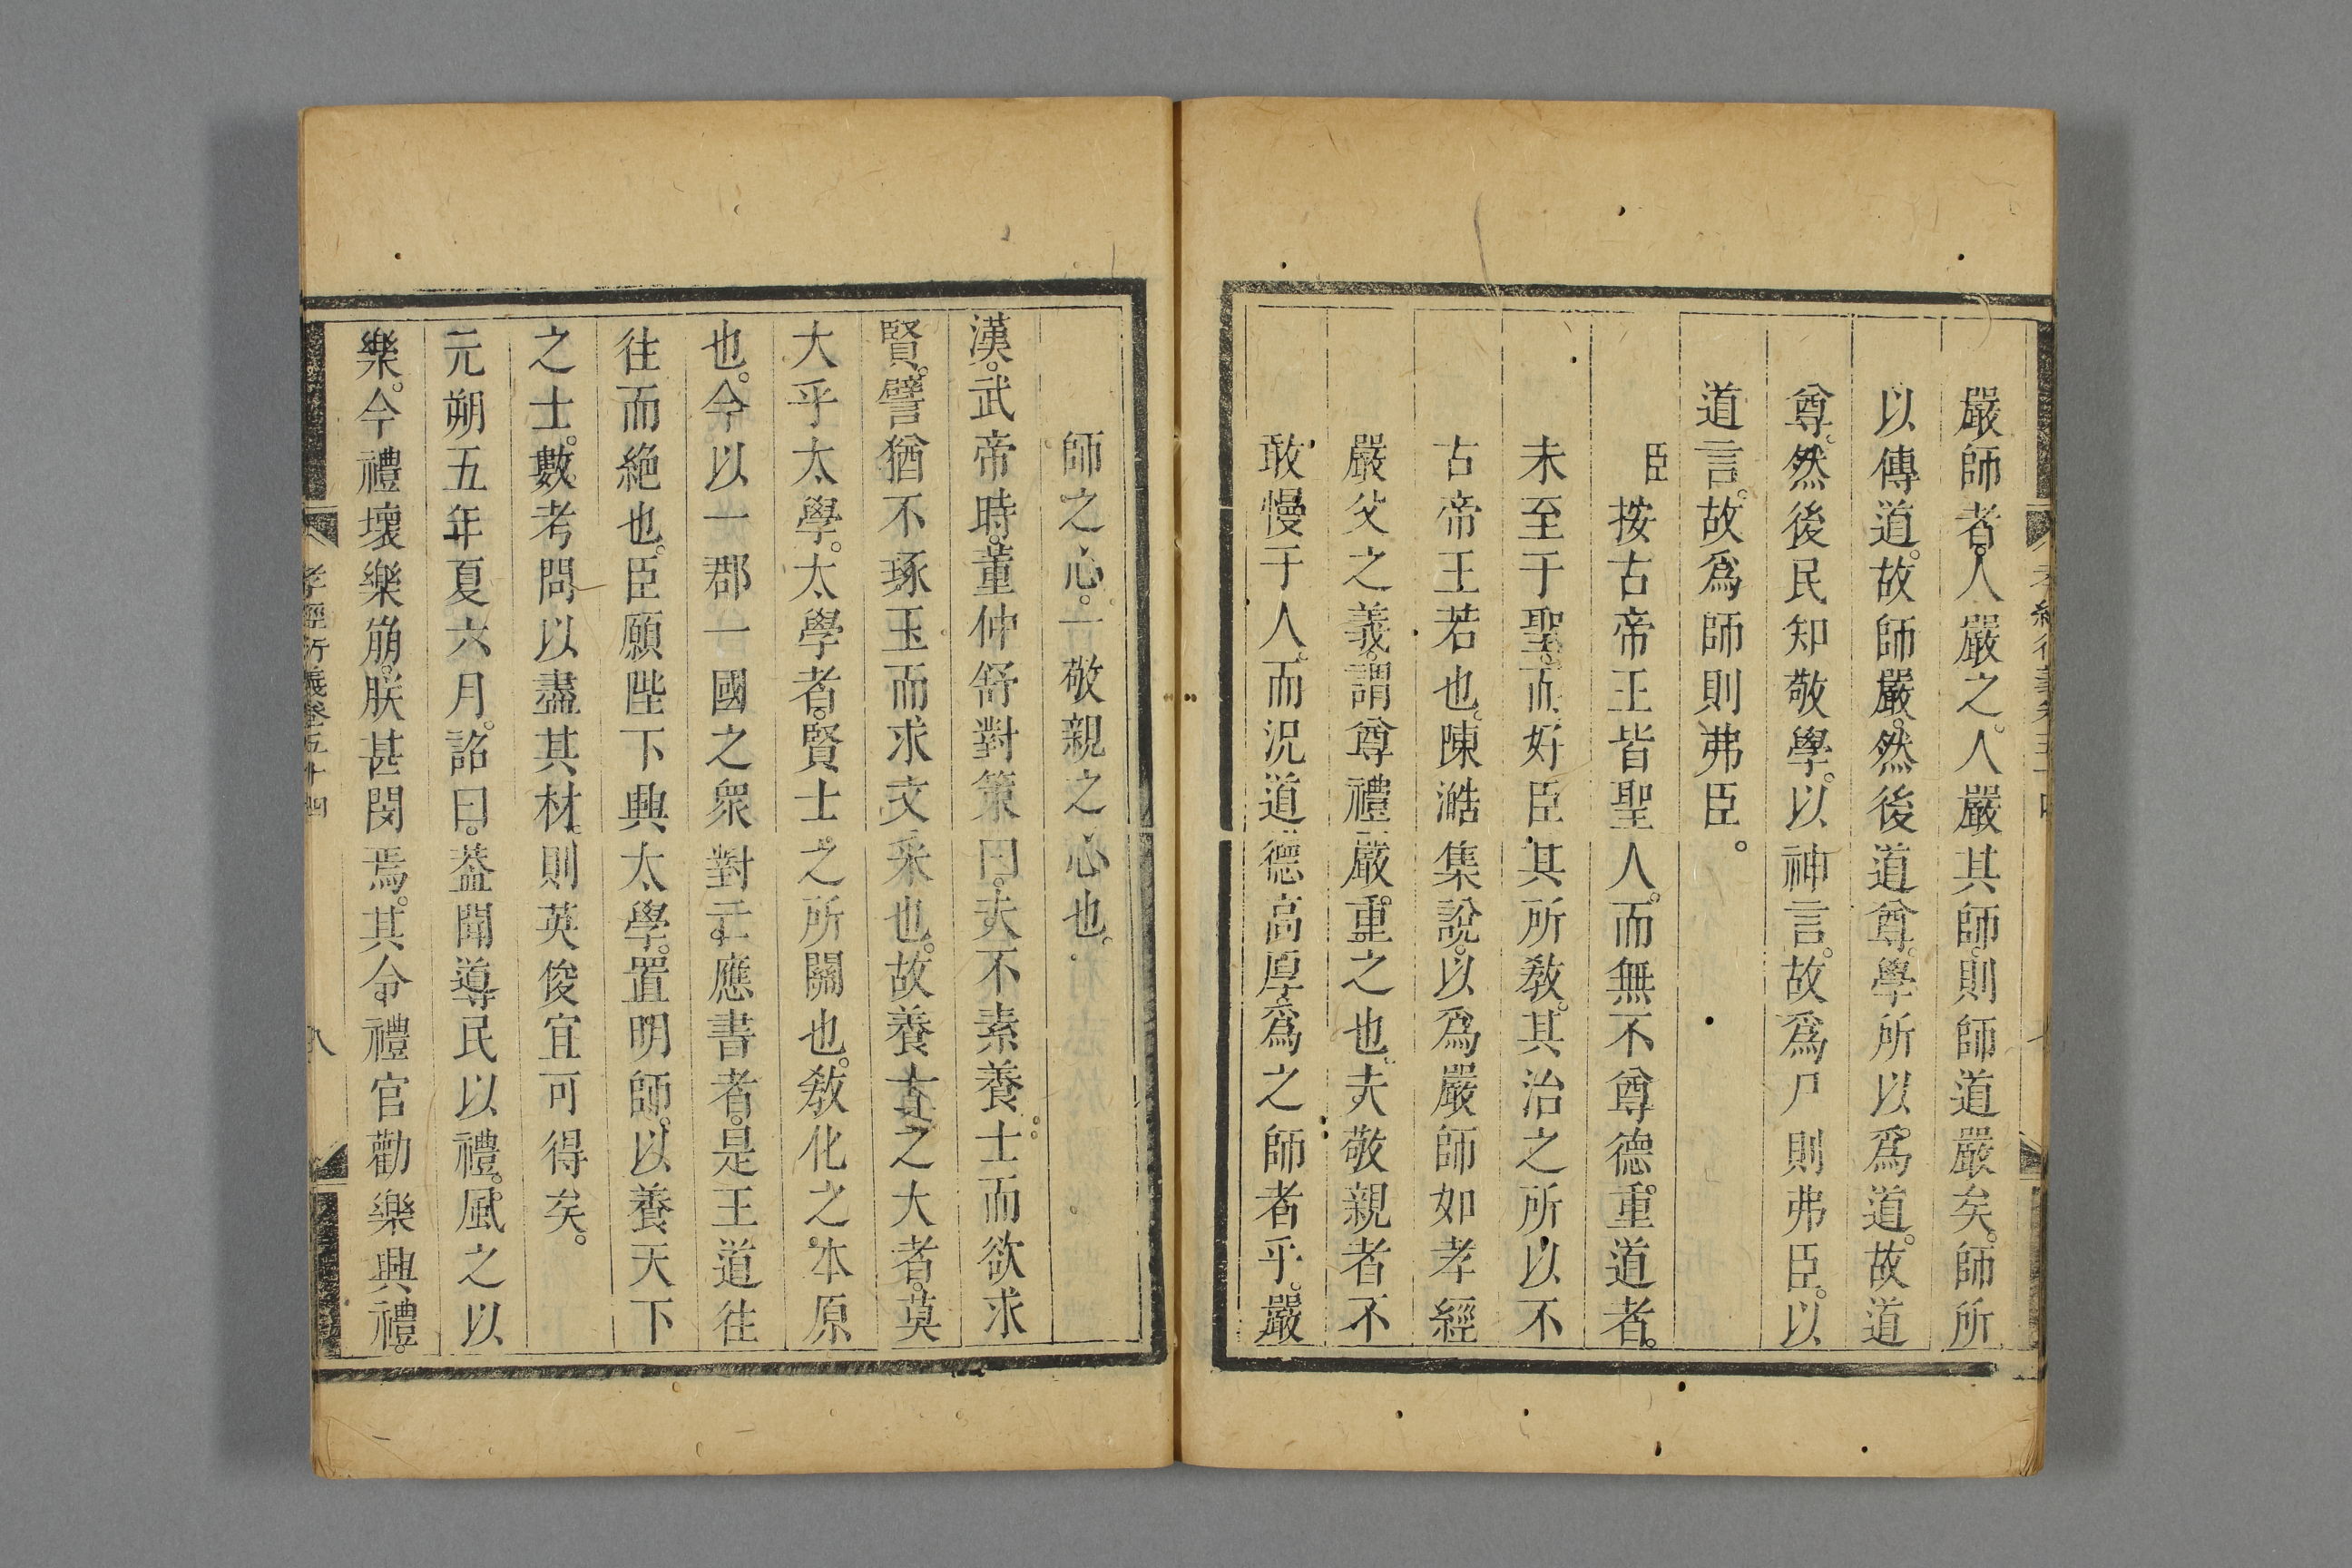 嚴師者。人嚴之。人嚴其師。則師道嚴矣。師所
以傳道。故師嚴。然後道尊。學所以爲道。故道
尊。然後民知敬學。以神言。故爲尸則弗臣。以
道言。故爲師則弗臣。
臣按古帝王皆聖人。而無不尊德。重道者。
未至于聖。而好臣其所敎。其治之所以不
古帝王若也。陳澔集說。以爲嚴師如孝經
嚴父之義。謂尊禮嚴重之也。夫敬親者不
敢慢于人。而況道德高厚。爲之師者乎。嚴
師之心。一敬親之心也。
漢。武帝時。董仲舒對策曰。夫不素養士而欲求
賢。譬猶不琢玉而求文采也。故養士之大者。莫
大乎太學。太學者。賢士之所關也。敎化之。本原
也。今以一郡一國之衆對亡。應書者。是王道往
往而絶也。臣願陛下興太學。置明師。以養天下
之士。數考問以盡其材。則英俊宜可得矣。
元朔五年夏六月。詔曰。葢聞導民以禮。風之以
樂。今禮壞樂崩。朕甚閔焉。其令禮官勸樂興禮。
孝經衍義卷五十四
八